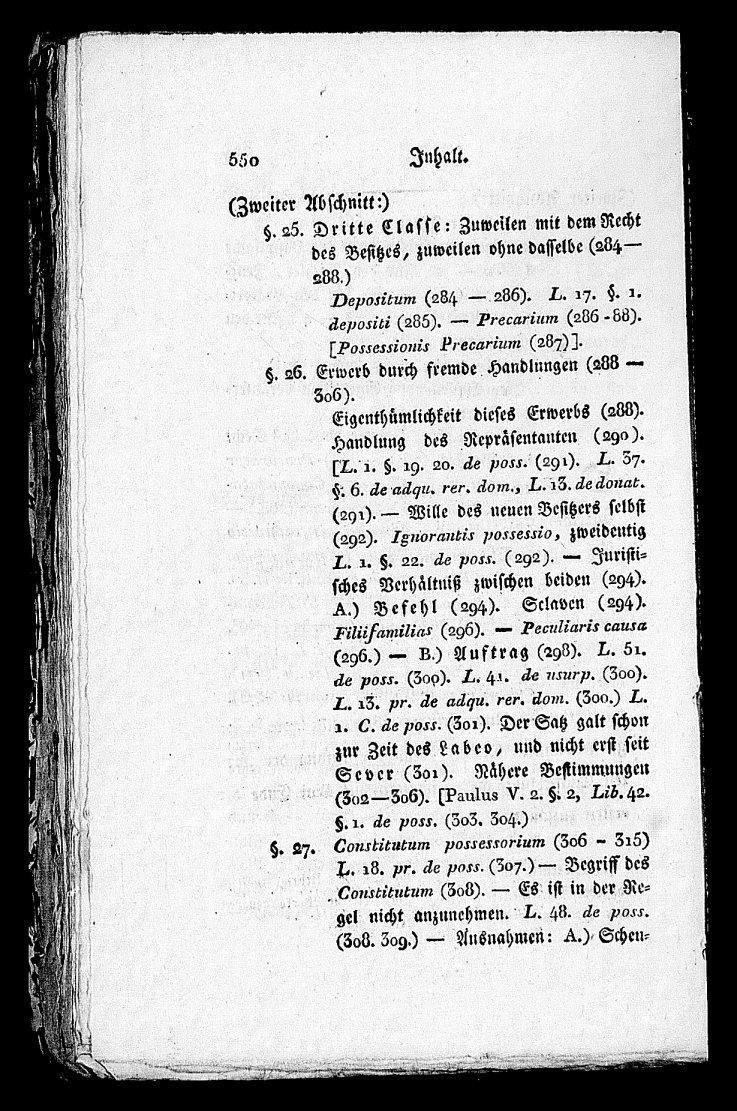 550 Inhalt.
(Zweiter Abschnitt:)
§. 25. Dritte Classe: Zuweilen mit dem Recht
des Besitzes, zuweilen ohne dasselbe (284—
288.)
Depositum (284 — 286). L. 17. §. 1.
depositi (285). — Precarium (286-88).
[Possessionis Precarium (287)].
§. 26. Erwerb durch fremde Handlungen (288 —
306).
Eigenthümlichkeit dieses Erwerbs (288).
Handlung des Repräsentanten (290).
[L. 1. §. 19. 20. de poss. (291). L. 37.
§. 6. de adqu. rer. dom., L. 13. de donat.
(291). — Wille des neuen Besitzers selbst
(292). Ignorantis possessio, zweideutig
L. 1. §. 22. de poss. (292). — Juristi=
sches Verhältniß zwischen beiden (294).
A.) Befehl (294). Sclaven (294).
Filiifamilias (296). — Peculiaris causa
(296.) — B.) Auftrag (298). L. 51.
de poss. (300). L. 41. de usurp. (300).
L. 13. pr. de adqu. rer. dom. (300.) L.
1. C. de poss. (301). Der Satz galt schon
zur Zeit des Labeo, und nicht erst seit
Sever (301). Nähere Bestimmungen
(302—306). [Paulus V. 2. §. 2, Lib. 42.
§. 1. de poss. (303. 304.)
§. 27. Constitutum possessorium (306 - 315)
L. 18. pr. de poss. (307.) — Begriff des
Constitutum (308). — Es ist in der Re=
gel nicht anzunehmen. L. 48. de poss.
(308. 309.) — Ausnahmen: A.) Schen=